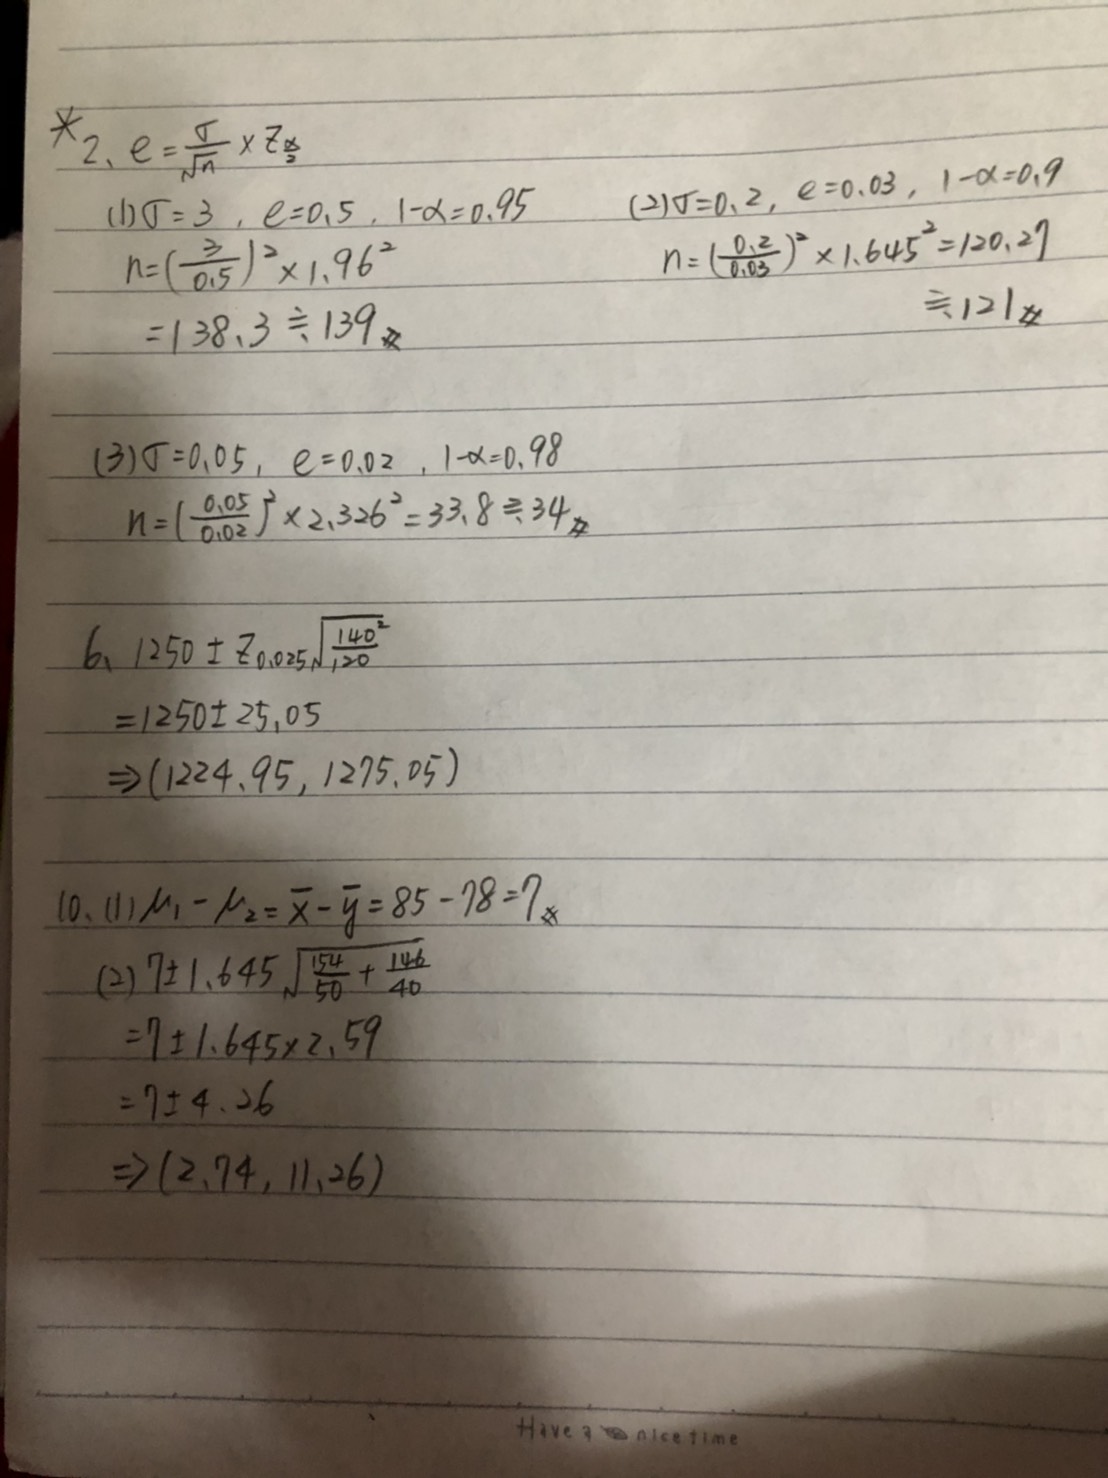 *2、e=σ/√n × Z α/2
(1)σ=3, e=0.5, 1-α=0.95
n=(3/0.5)²×1.96²
=138.3≒139#
(2)σ=0.2, e=0.03, 1-α=0.9
n=(0.2/0.03)²×1.645²=120.27
≒121#
(3)σ=0.05, e=0.02, 1-α=0.98
n=(0.05/0.02)²×2.326²=33.8≒34#
6、1250±Z0.025√(140²/120)
=1250±25.05
⇒(1224.95, 1275.05)
10、(1)μ₁-μ₂=x̄-ȳ=85-78=7#
(2)7±1.645√(154/50+146/40)
=7±1.645×2.59
=7±4.26
⇒(2.74, 11.26)
Have a nice time